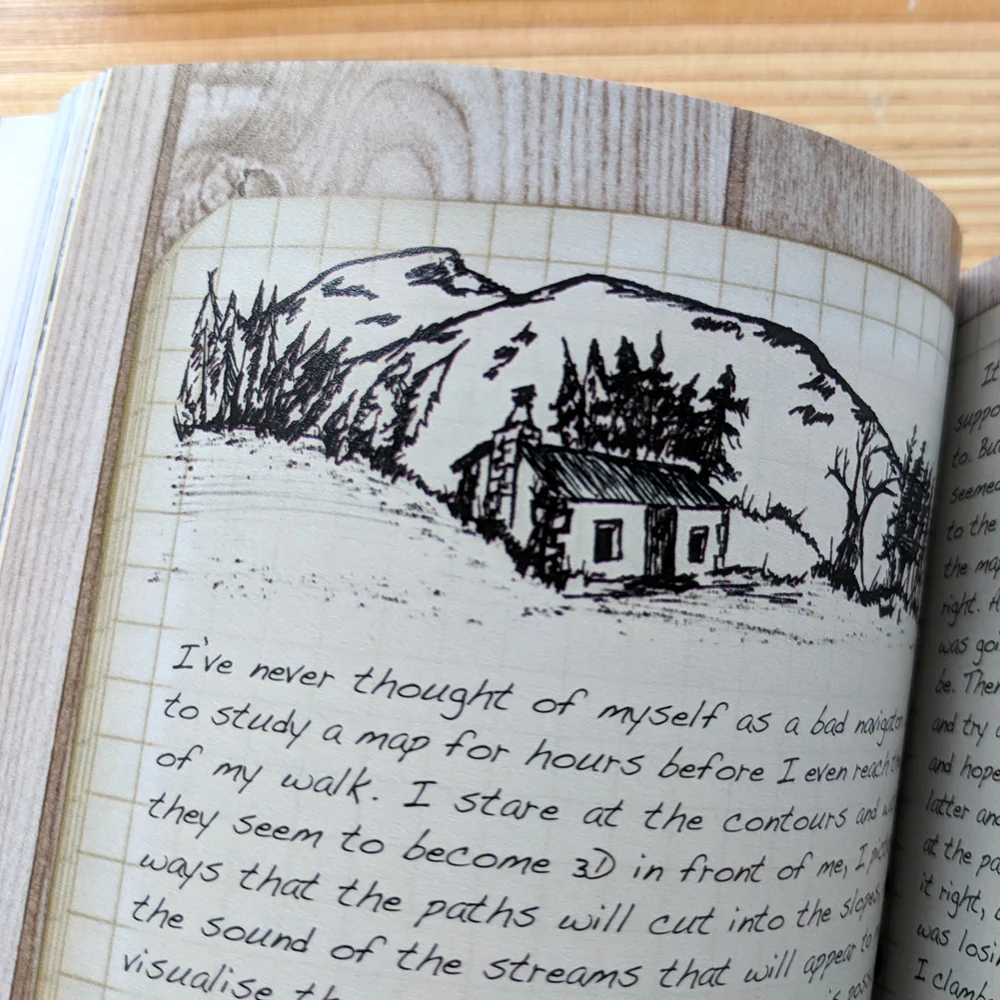 I've never thought of myself as a bad
to study a map for hours before I even reach
of my walk. I stare at the contours and
they seem to become 3D in front of me, I
ways that the paths will cut into the slopes
the sound of the streams that will appear to
visualise
It
to. But
seemed
to the
the map
right. A
was
be. Then
and try
and hope
latter and
at the
it right,
was
I